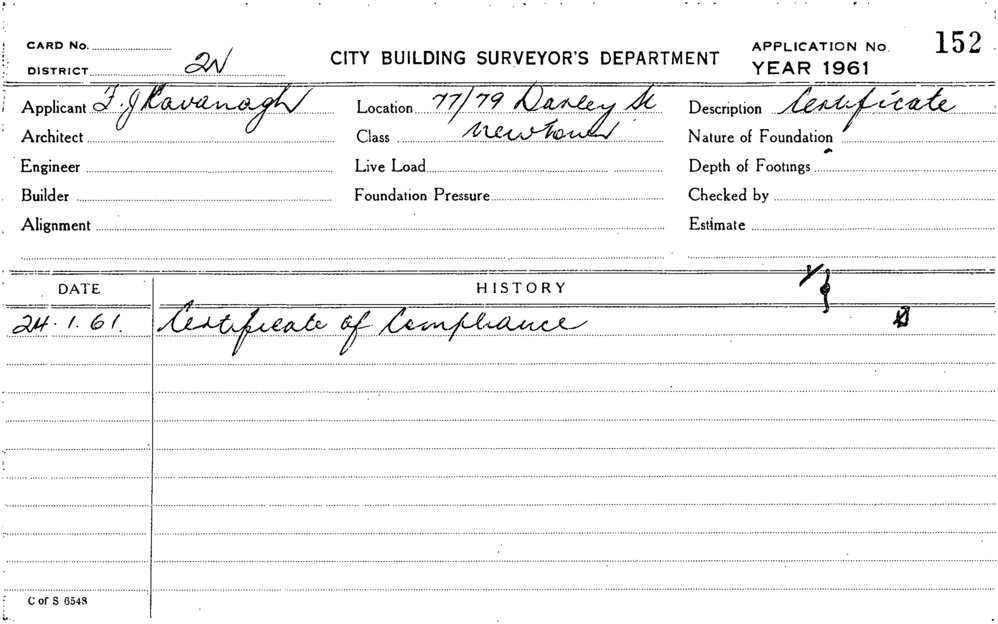 CARD No.
DISTRICT 2N
CITY BUILDING SURVEYOR'S DEPARTMENT
APPLICATION No. 152
YEAR 1961
Applicant F. J Kavanagh
Location 77/79 Darley St
Description Certificate
Architect
Class Newtown
Nature of Foundation
Engineer
Live Load
Depth of Footings
Builder
Foundation Pressure
Checked by
Alignment
Estimate
DATE
HISTORY
24.1.61. Certificate of Compliance
C of S 6548